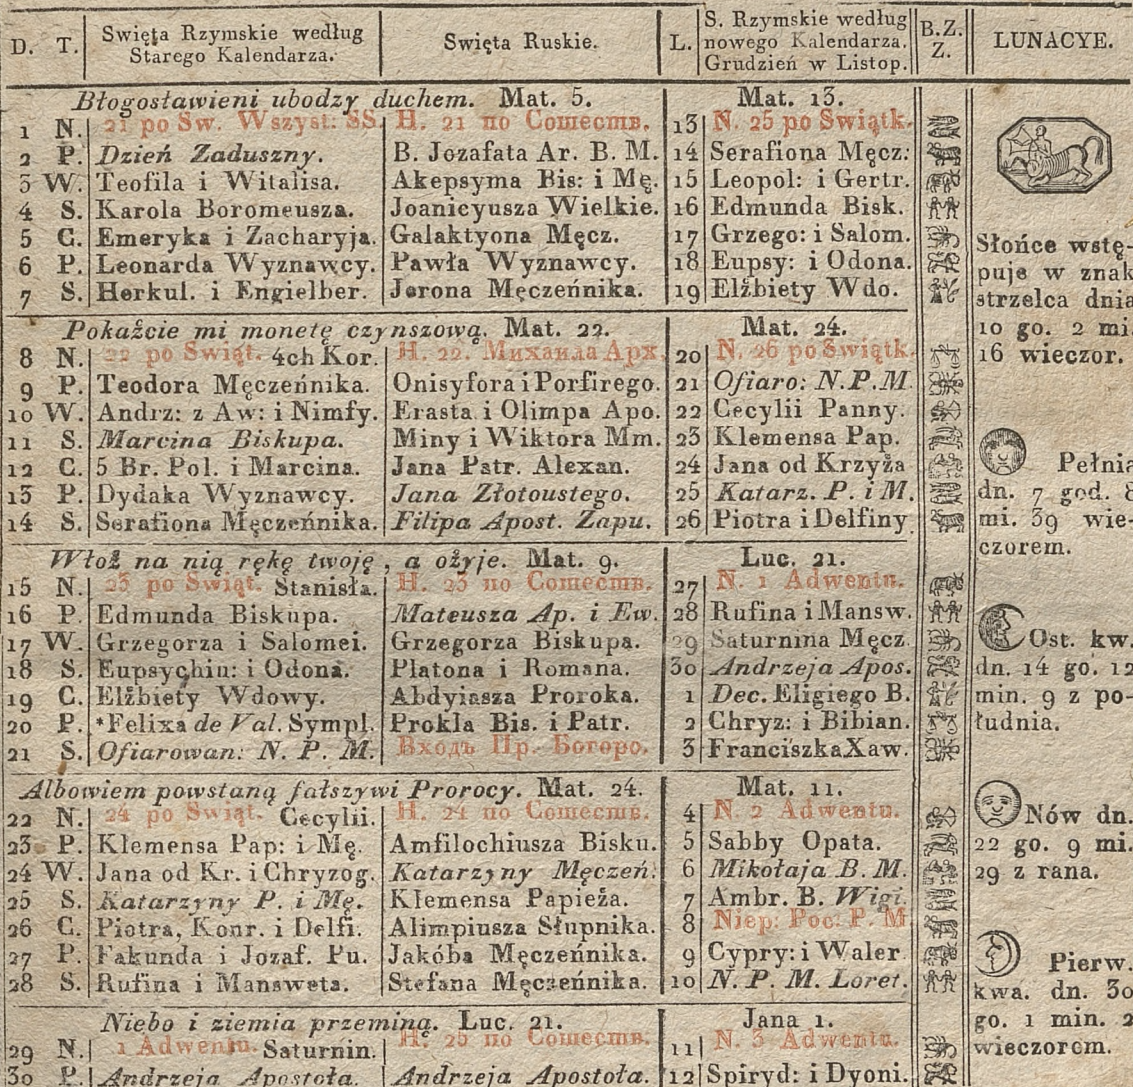 D. T. Swięta Rzymskie według Starego Kalendarza. Swięta Ruskie. L. S. Rzymskie według nowego Kalendarza. Grudzień w Listop. B.Z. Z. LUNACYE.
Błogosławieni ubodzy duchem. Mat. 5. Mat. 13.
1 N. 21 po Sw. Wszyst: SS. Н. 21 по Сошеств. 13 N. 25 po Swiątk.
2 P. Dzień Zaduszny. B. Jozafata Ar. B. M. 14 Serafiona Męcz:
3 W. Teofila i Witalisa. Akepsyma Bis: i Mę. 15 Leopol: i Gertr.
4 S. Karola Boromeusza. Joanicyusza Wielkie. 16 Edmunda Bisk.
5 C. Emeryka i Zacharyja. Galaktyona Męcz. 17 Grzego: i Salom.
6 P. Leonarda Wyznawcy. Pawła Wyznawcy. 18 Eupsy: i Odona.
7 S. Herkul. i Engielber. Jerona Męczeńnika. 19 Elżbiety Wdo.
Słońce wstę-
puje w znak
strzelca dnia
10 go. 2 mi.
16 wieczor.
Pokażcie mi monetę czynszową. Mat. 22. Mat. 24.
8 N. 22 po Swiąt. 4ch Kor. Н. 22. Михаила Арх. 20 N. 26 po Swiątk.
9 P. Teodora Męczeńnika. Onisyfora i Porfirego. 21 Ofiaro: N.P.M
10 W. Andrz: z Aw: i Nimfy. Erasta i Olimpa Apo. 22 Cecylii Panny.
11 S. Marcina Biskupa. Miny i Wiktora Mm. 23 Klemensa Pap.
12 C. 5 Br. Pol. i Marcina. Jana Patr. Alexan. 24 Jana od Krzyża
13 P. Dydaka Wyznawcy. Jana Złotoustego. 25 Katarz. P. i M.
14 S. Serafiona Męczeńnika. Filipa Apost. Zapu. 26 Piotra i Delfiny
Pełnia
dn. 7 god. 8
mi. 39 wie-
czorem.
Włoż na nią rękę twoję, a ożyje. Mat. 9. Luc. 21.
15 N. 23 po Swiąt. Stanisła. Н. 23 по Сошеств. 27 N. 1 Adwentu.
16 P. Edmunda Biskupa. Mateusza Ap. i Ew. 28 Rufina i Mansw.
17 W. Grzegorza i Salomei. Grzegorza Biskupa. 29 Saturnina Męcz
18 S. Eupsychiu: i Odona. Platona i Romana. 30 Andrzeja Apos.
19 C. Elżbiety Wdowy. Abdyiasza Proroka. 1 Dec. Eligiego B.
20 P. *Felixa de Val. Sympl. Prokla Bis. i Patr. 2 Chryz: i Bibian.
21 S. Ofiarowan: N. P. M. Входъ Пр. Богоро. 3 Franciszka Xaw.
Ost. kw.
dn. 14 go. 12
min. 9 z po-
łudnia.
Albowiem powstaną fałszywi Prorocy. Mat. 24. Mat. 11.
22 N. 24 po Swiąt. Cecylii. Н. 24 по Сошеств. 4 N. 2 Adwentu.
23 P. Klemensa Pap: i Mę. Amfilochiusza Bisku. 5 Sabby Opata.
24 W. Jana od Kr. i Chryzog. Katarzyny Męczeń. 6 Mikołaja B. M.
25 S. Katarzyny P. i Mę. Klemensa Papieża. 7 Ambr. B. Wigi.
26 C. Piotra, Konr. i Delfi. Alimpiusza Słupnika. 8 Niep: Poc: P. M
27 P. Fakunda i Jozaf. Pu. Jakóba Męczeńnika. 9 Cypry: i Waler
28 S. Rufina i Mansweta. Stefana Męczeńnika. 10 N. P. M. Loret.
Nów dn.
22 go. 9 mi.
29 z rana.
Pierw.
kwa. dn. 30
go. 1 min. 2
wieczorem.
Niebo i ziemia przeminą. Luc. 21. Jana 1.
29 N. 1 Adwentu. Saturnin. Н. 25 по Сошеств. 11 N. 3 Adwentu.
30 P. Andrzeja Apostoła. Andrzeja Apostoła. 12 Spiryd: i Dyoni.